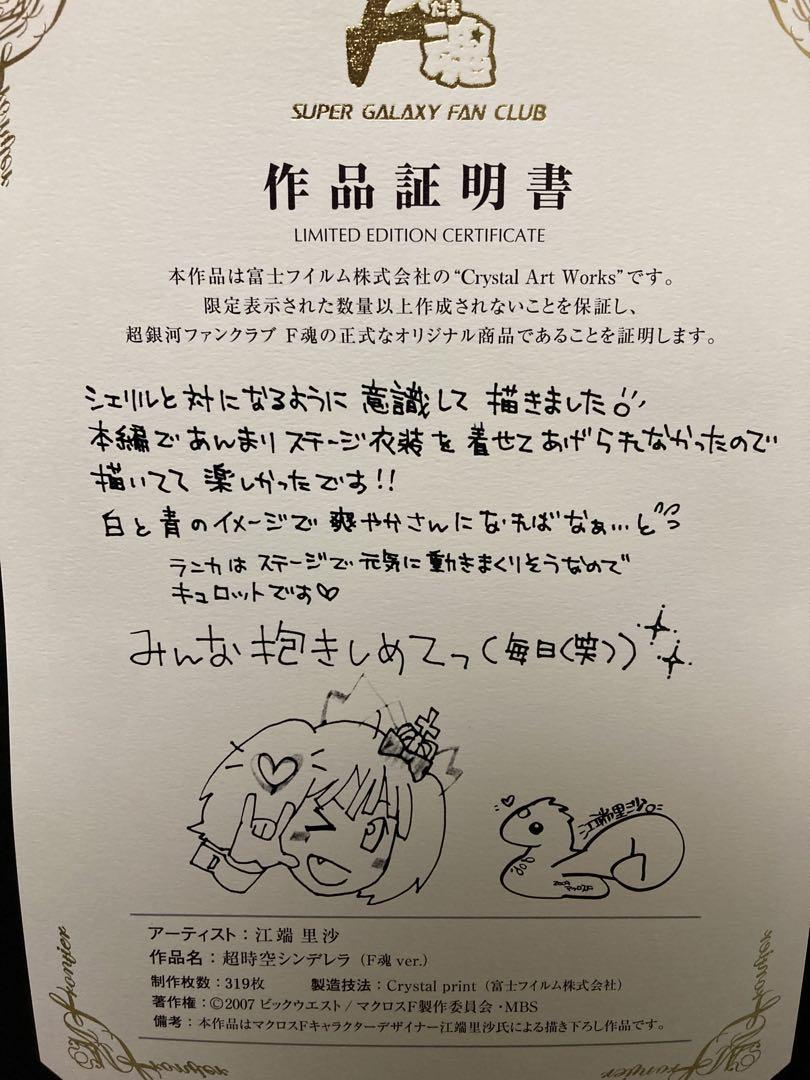 たま
魂
SUPER GALAXY FAN CLUB
作品証明書
LIMITED EDITION CERTIFICATE
本作品は富士フイルム株式会社の“Crystal Art Works”です。
限定表示された数量以上作成されないことを保証し、
超銀河ファンクラブ F魂の正式なオリジナル商品であることを証明します。
シェリルと対になるように 意識して 描きました
本編であんまり ステージ衣装を 着せてあげられなかったので
描いてて 楽しかったです!!
白と青のイメージで 爽やかさんに なればなぁ…と
ランカは ステージで 元気に 動きまくりそうなので
キュロットです♡
みんな 抱きしめてっ (毎日(笑))
江端里沙
アーティスト：江端 里沙
作品名：超時空シンデレラ（F魂 ver.）
制作枚数：319枚 製造技法：Crystal print（富士フイルム株式会社）
著作権：©2007 ビックウエスト / マクロスF製作委員会・MBS
備考：本作品はマクロスFキャラクターデザイナー江端里沙氏による描き下ろし作品です。
Frontier
Frontier
Frontier
Frontier